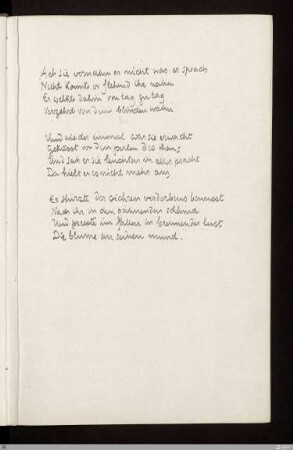 Ach sie vernahm es nicht was er sprach
Nicht konnte er flehend ihr nahn
Er welkte dahin von tag zu tag
Verzehrt von dem blinden wahn

Und wieder einmal war sie erwacht
Geküsst von den perlen des thaus
Und sah er sie leuchten in aller pracht
Da hielt er es nicht mehr aus

Er stürzte des sichren verderbens bewusst
Nach ihr in den gähnenden schlund
Und presste im fallen in brennender lust
Die blume an seinen mund.